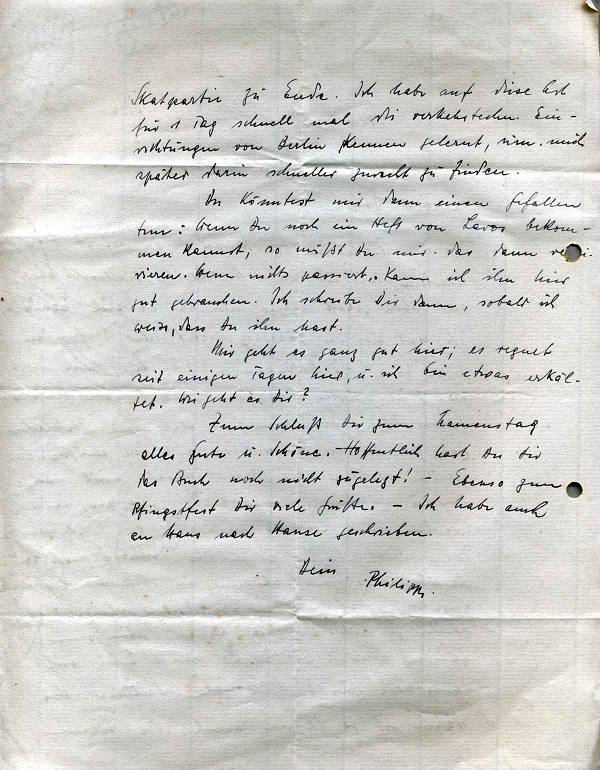 Skatpartie zu Ende. Ich habe auf diese Art
für 1 Tag schnell mal die verkehrstechn. Ein-
richtungen von Berlin kennen gelernt, um mich
später darin schneller zurecht zu finden.
Du könntest mir dann einen Gefallen
tun: Wenn Du noch ein Heft von bekom-
men kannst, so müßt Du mir das dann
Wenn nichts passiert, kann ich ihn hier
gut gebrauchen. Ich schreibe Dir dann, sobald ich
weiss, dass Du ihn hast.
Mir geht es ganz gut hier; es regnet
seit einigen Tagen hier, u. ich bin etwas erkäl-
tet. Wie geht es Dir?
Zum Schluß Dir zum Namenstag
alles Gute u. Schöne. Hoffentlich hast Du Dir
das Buch noch nicht zugelegt! – Ebenso zum
Pfingstfest Dir viele Grüße. – Ich habe auch
an Hans nach Hause geschrieben.
Dein
Philipp.